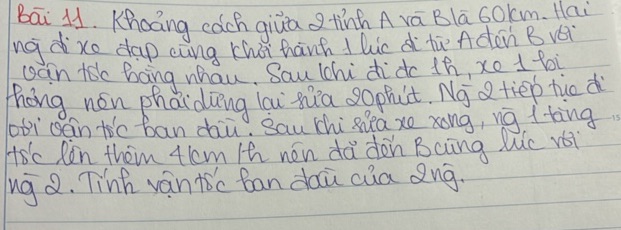 Bài 11. Khoảng cách giữa 2 tỉnh A và B là 60km. Hai
ng đi xe đạp cùng khởi hành 1 lúc đi từ A đến B với
vận tốc bằng nhau. Sau khi đi đc 1h, xe 1 bị
hỏng nên phải dừng lại sửa 20phút. Ng 2 tiếp tục đi
với vận tốc ban đầu. Sau khi sửa xe xong, ng 1 tăng
tốc lên thêm 4km/h nên đã đến B cùng lúc với
ng 2. Tính vận tốc ban đầu của 2ng.